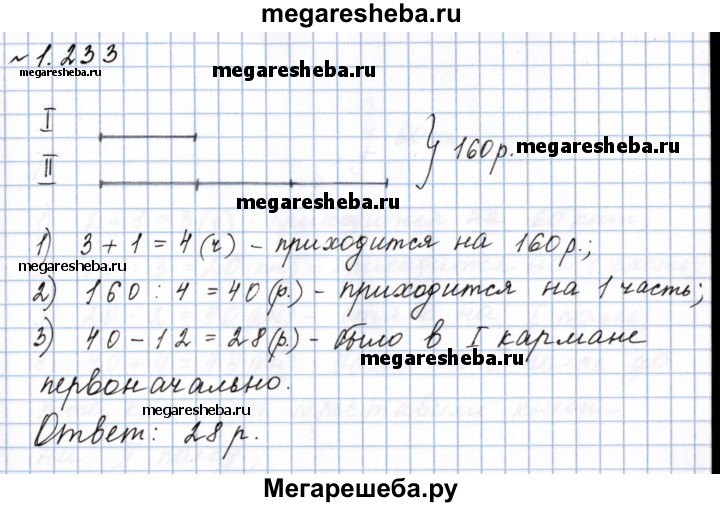 megaresheba.ru
№ 1.233
megaresheba.ru megaresheba.ru
I
II } 160 р. megaresheba.ru
1) 3 + 1 = 4 (ч) - приходится на 160 р.;
megaresheba.ru
2) 160 : 4 = 40 (р.) - приходится на 1 часть;
3) 40 - 12 = 28 (р.) - было в I кармане
megaresheba.ru
первоначально.
megaresheba.ru
Ответ: 28 р.
Мегарешеба.ру